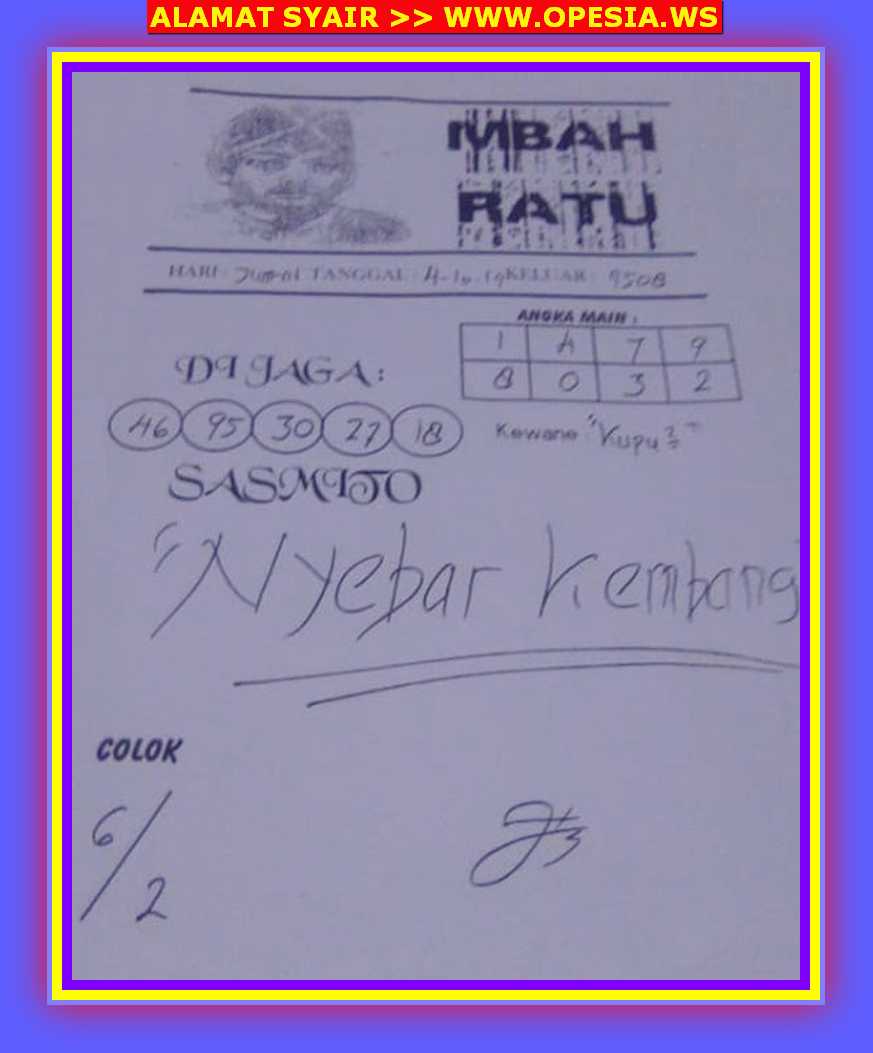 ALAMAT SYAIR >> WWW.OPESIA.WS
MBAH
RATU
HARI : Jum-at TANGGAL : 4-10-19 KELUAR : 9508
ANGKA MAIN :
1 4 7 9
8 0 3 2
DI JAGA :
46 95 30 27 18
Kewane "Kupu²"
SASMITO
"Nyebar Kembang
COLOK
6/2